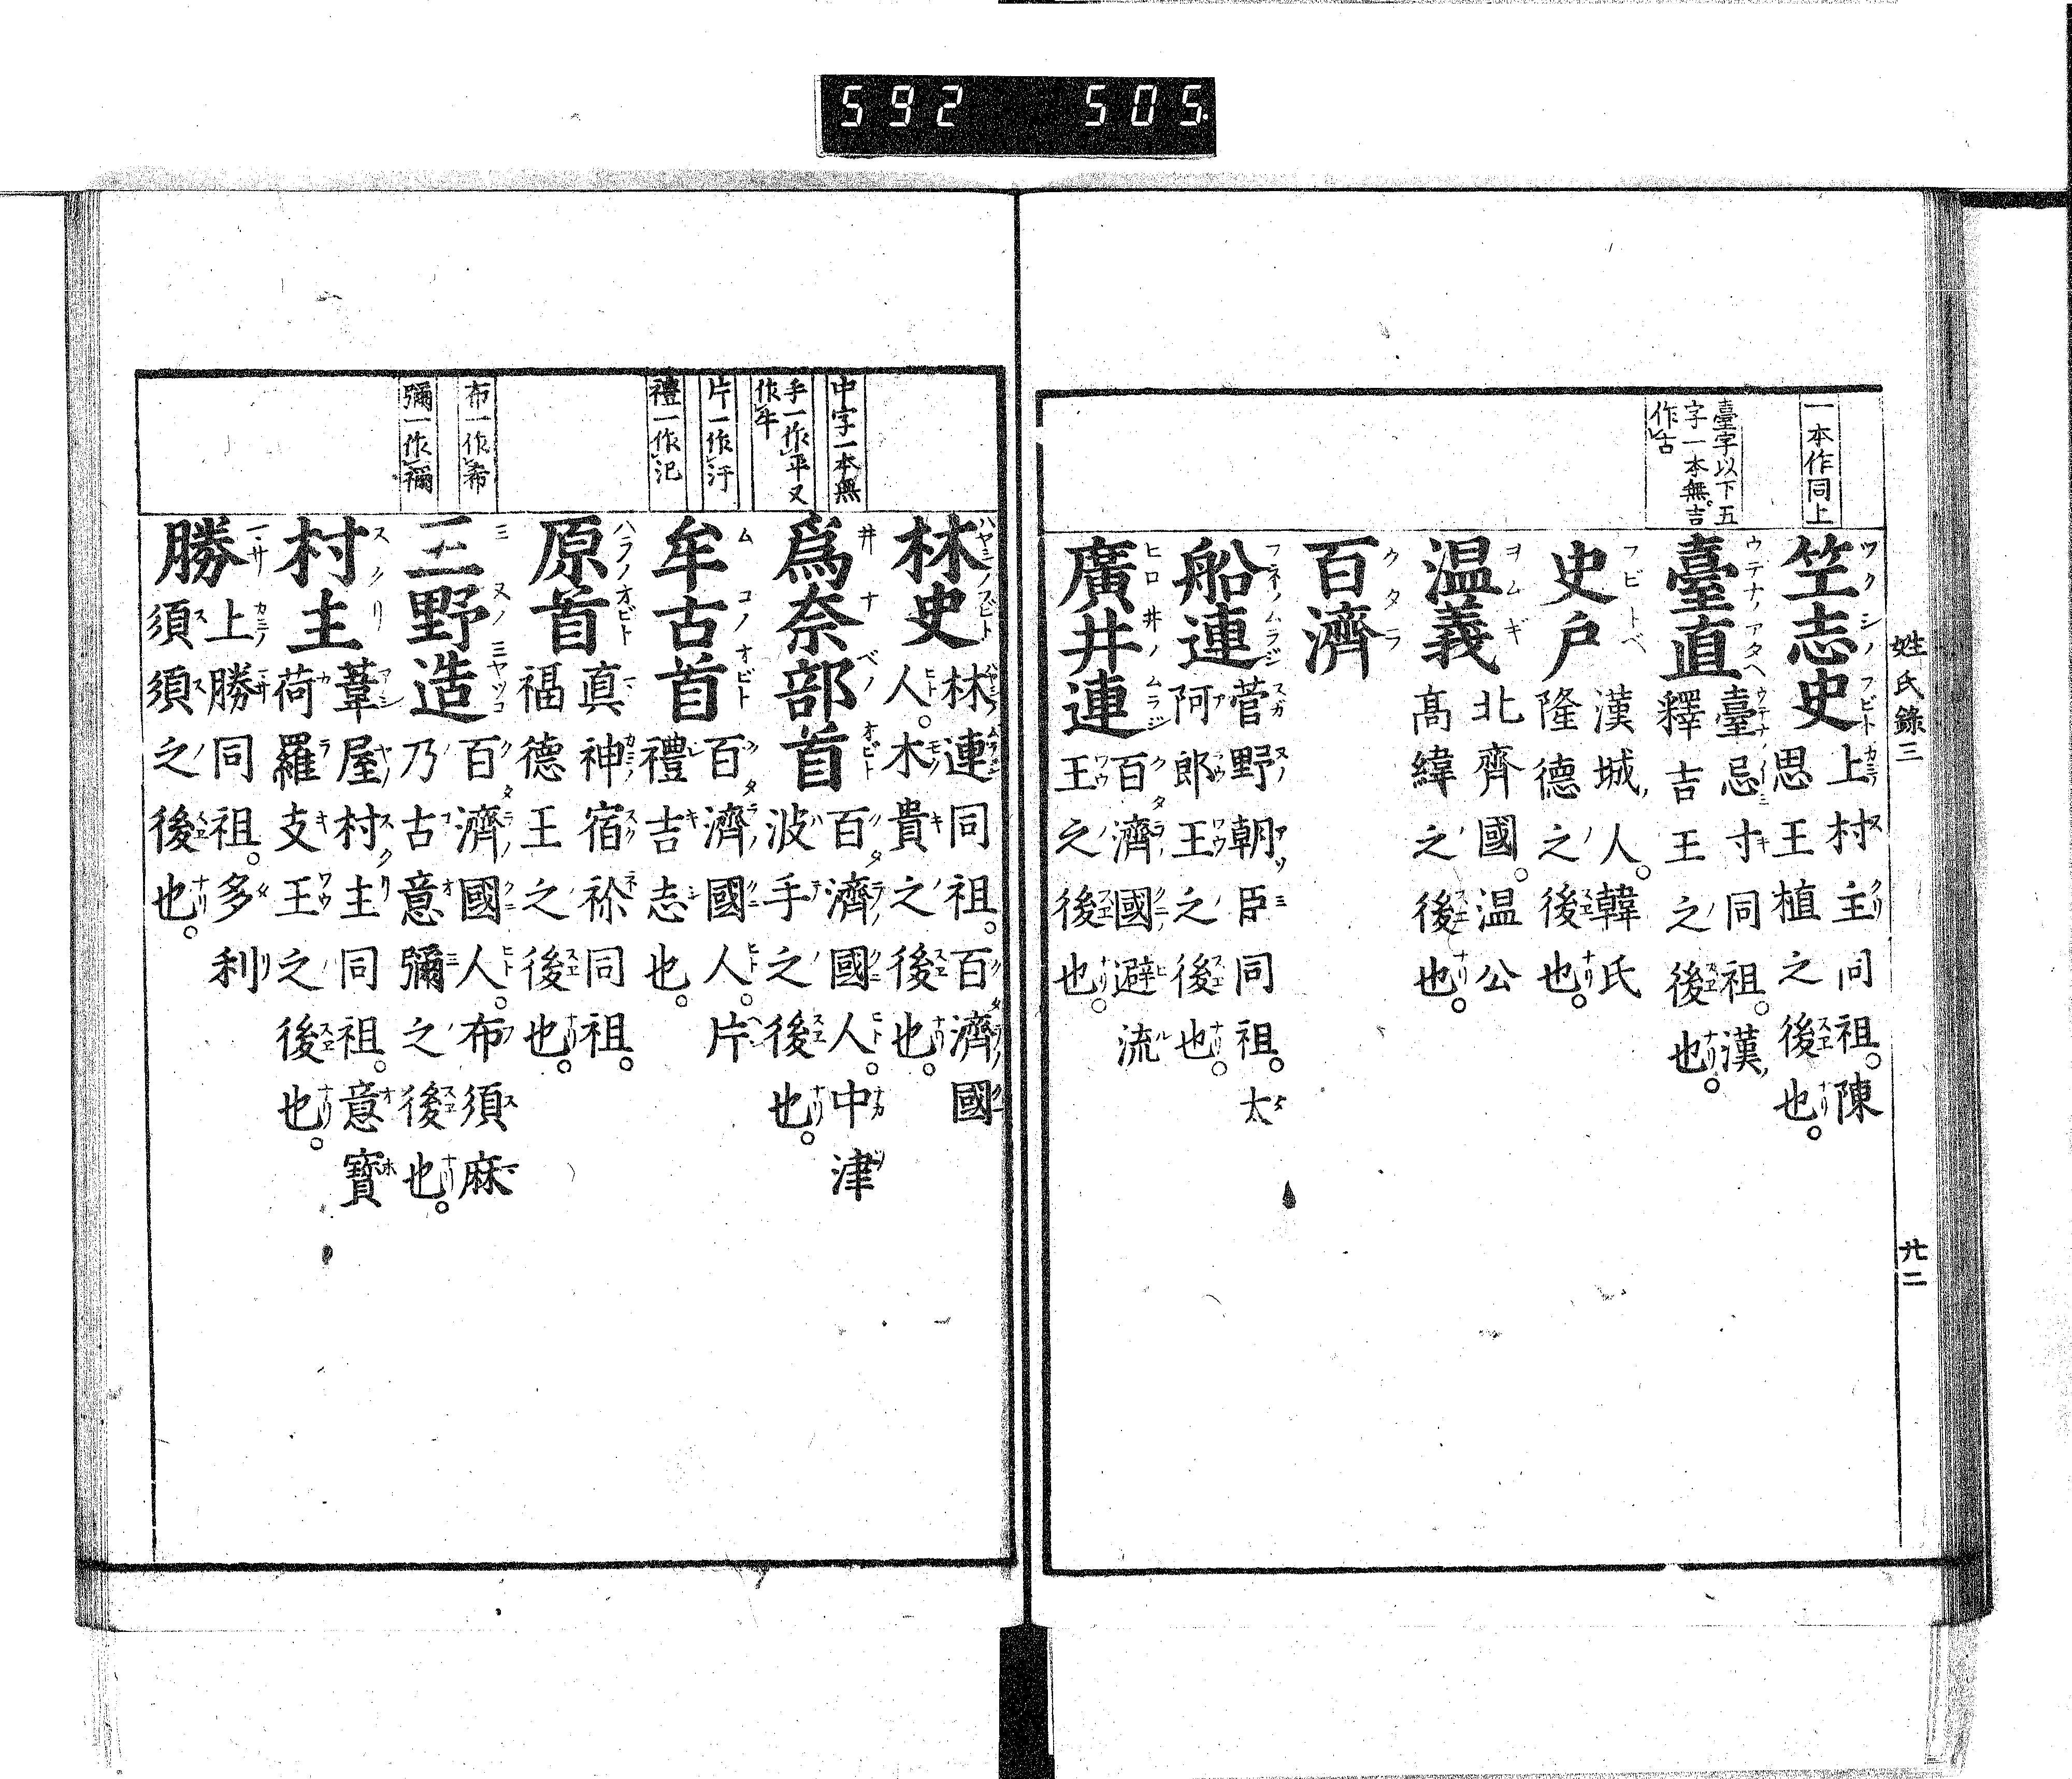 592 505
姓氏錄三
廿二
一本作同上
臺字以下五
字一本無。吉
作古
竺志史
上村主同祖。陳
思王植之後也。
臺直
臺忌寸同祖。漢
釋吉王之後也。
史戶
漢城人。韓氏
隆德之後也。
温義
北齊國。温公
高緯之後也。
百濟
船連
菅野朝臣同祖。太
阿郎王之後也。
廣井連
百濟國避流
王之後也。
中字一本無
手一作平又
作牛
片一作汙
禮一作汜
布一作希
彌一作禰
林史
林連同祖。百濟國
人。木貴之後也。
爲奈部首
百濟國人。中津
波手之後也。
牟古首
百濟國人。片
禮吉志也。
原首
真神宿祢同祖。
福德王之後也。
三野造
百濟國人。布須麻
乃古意彌之後也。
村主
葦屋村主同祖。意寶
荷羅支王之後也。
勝
上勝同祖。多利
須須之後也。